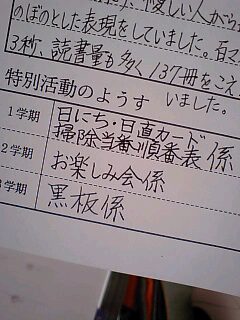 優しい人がら
のぼのとした表現をしていました。百マ
3秒、読書量も多く137冊をこえ
いました。
特別活動のようす
1学期 日にち・日直カード 係
掃除当番順番表
2学期 お楽しみ会係
学期 黒板係